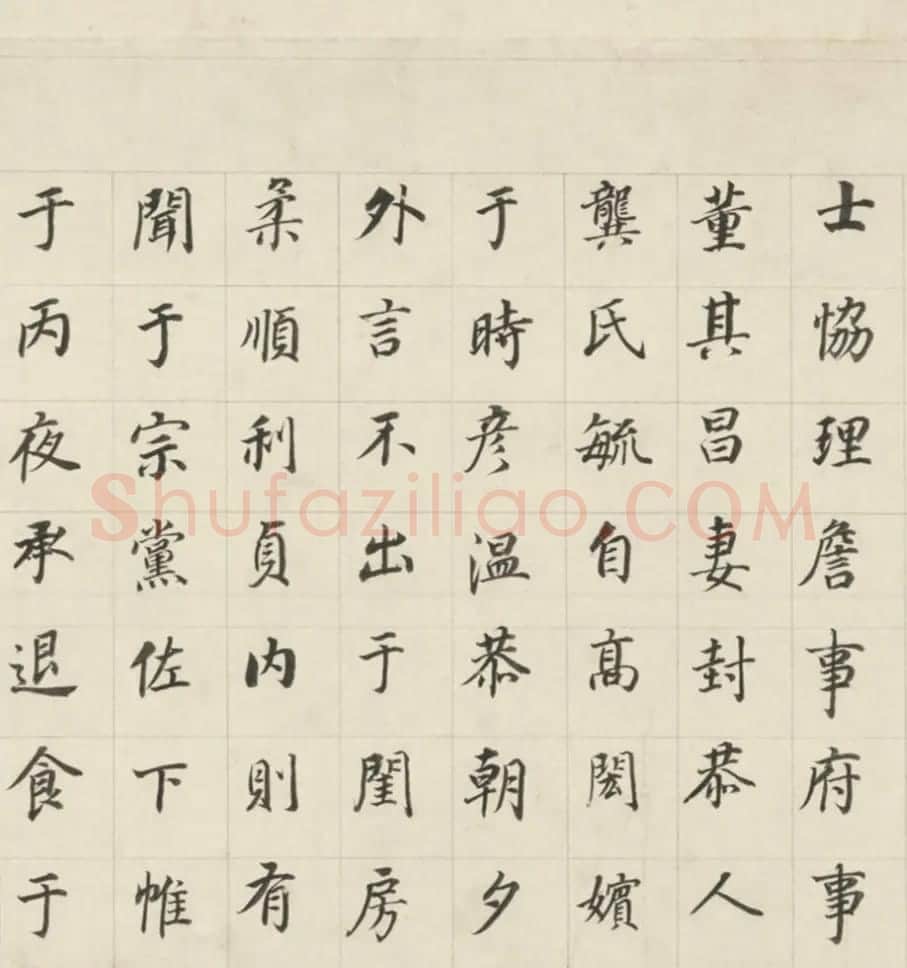 士協理詹事府事
董其昌妻封恭人
龔氏毓自高閎嬪
于時彥溫恭朝夕
外言不出于閨房
柔順利貞內則有
聞于宗黨佐下帷
于丙夜承退食于
Shufaziliao.COM